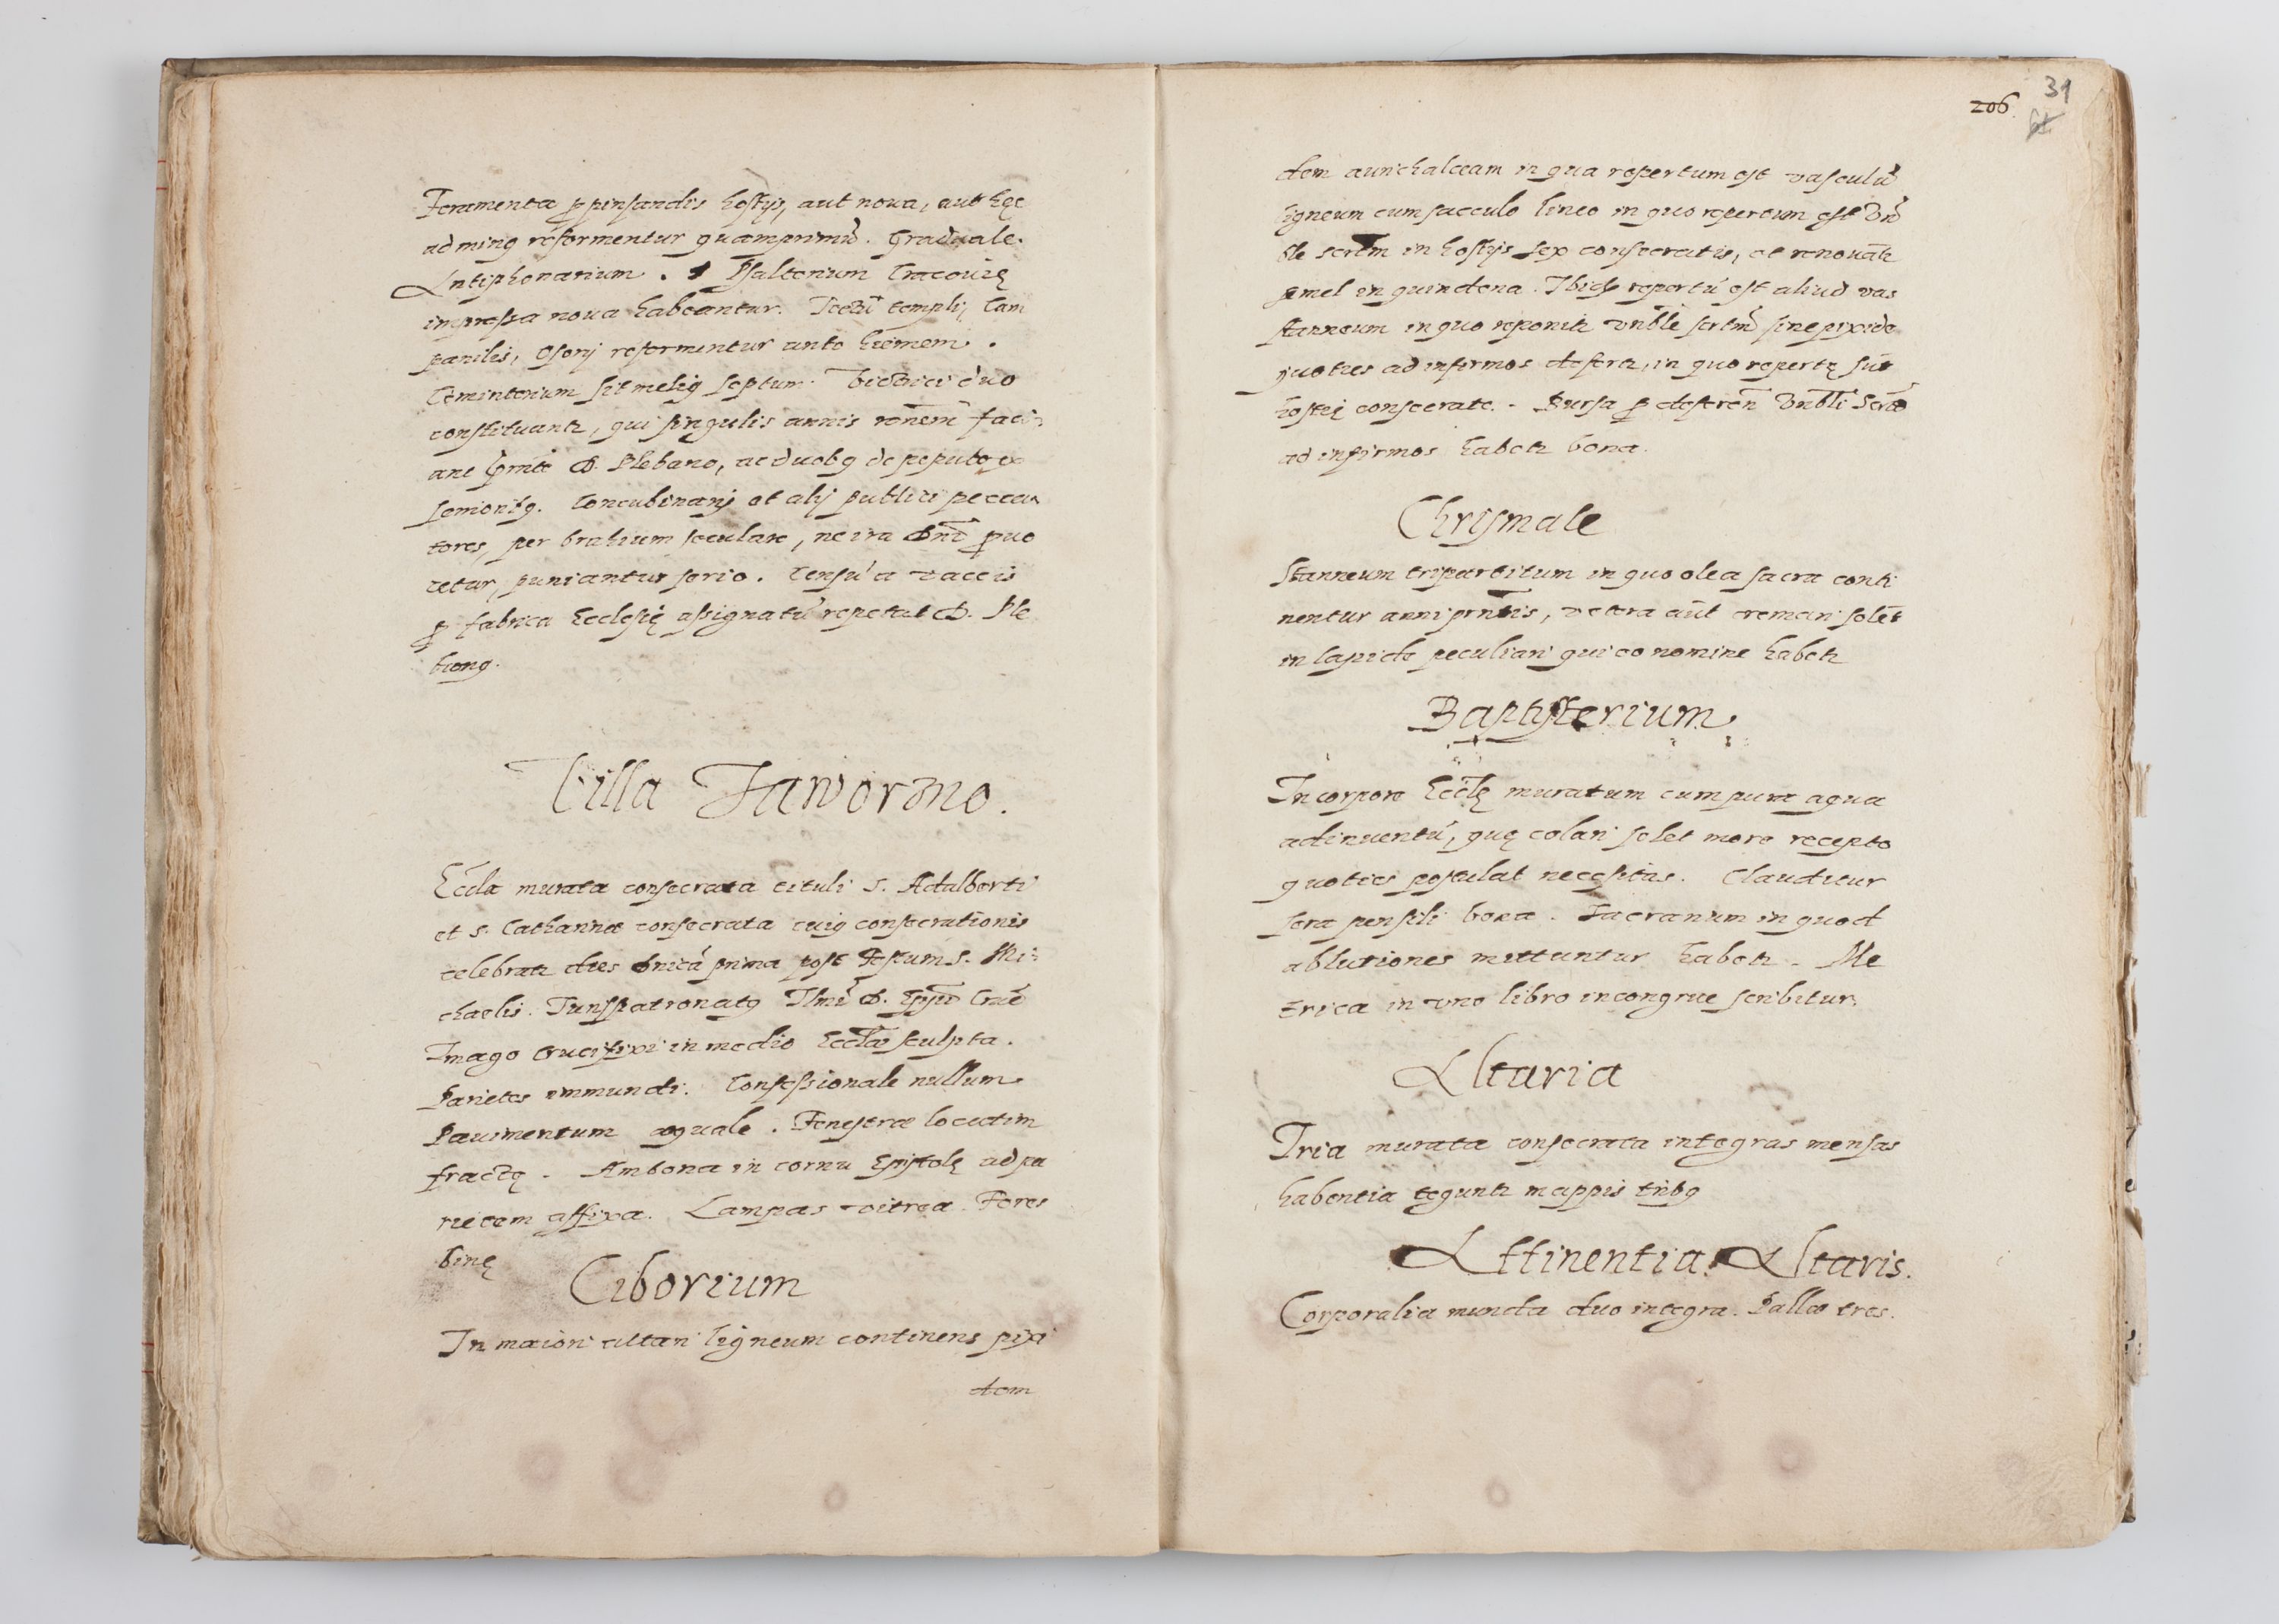 Feramenta p pinsandis hostijs, aut noua, aut hęc
ad ming reformentur quamprimū. Graduale.
Antiphonarium. Psalterium Cracouię
impressa noua habeantur. Tectū templi, Cam
panilis, Osorij reformentur ante hiemem.
Cęminterium sit melig septum. Victrici duo
constituantr, qui singulis annis ronem faci-
ant D. Plebano, ac duobg de populo
senioribg. Concubinarij et alij publici pecca-
tores, per brahium seculare, ne ira Dni prouo
cetur, puniantur serio. Censū a vaccis
p fabrica Ecclesię assignatū repetat D. Ple
bang.
Villa Jaworzno.
Eccla murata consecrata tituli S. Adalberti
et S. Catharinæ consecrata cuig consecrationis
celebratr dies dnica prima post Festum S. Mi-
chaelis. Juspatronatg Illmi D. Eppi Crac
Imago Crucifixi in medio Ecclæ sculpta.
Parietes immundi. Confessionale nullum
Pauimentum æquale. Fenestræ locatim
fractę. Ambona in cornu Epistolę ad pa
rietem affixa. Lampas vitrea. Fores
binę
Ciborium
In maiori altari ligneum continens pixi
dem
206. 31
dem aurichalceam in qua repertum est vasculū
ligneum cum sacculo lineo in quo repertum est Vn
ble scrtm in hostijs sex consecratis, et renouatr
semel in quindena. Ibidē repertū est aliud vas
stanneum in quo reponitr vnble scrtm sine pixide
quoties ad infirmos defertr, in quo repertę sūt
hostię consecratę. Bursa p deferen Vnbli Scrto
ad infirmos habetr bona.
Chrismale
Stanneum tripartitum in quo olea sacra conti
nentur anni pntis, vetera aūt cremari solēt
in lapide peculiari qui eo nomine habetr
Baptisterium
In corpore Ecclę muratum cum pura aqua
adinuentū, quę colari solet more recepto
quoties postulat necessitas. Clauditur
sera pensili bona. Sacrarium in quod
ablutiones mittuntur habetr. Me
trica in vno libro incongrue scribitur.
Altaria
Tria murata consecrata integras mensas
habentia teguntr mappis tribg
Attinentia Altaris.
Corporalia munda duo integra. Pallæ tres.